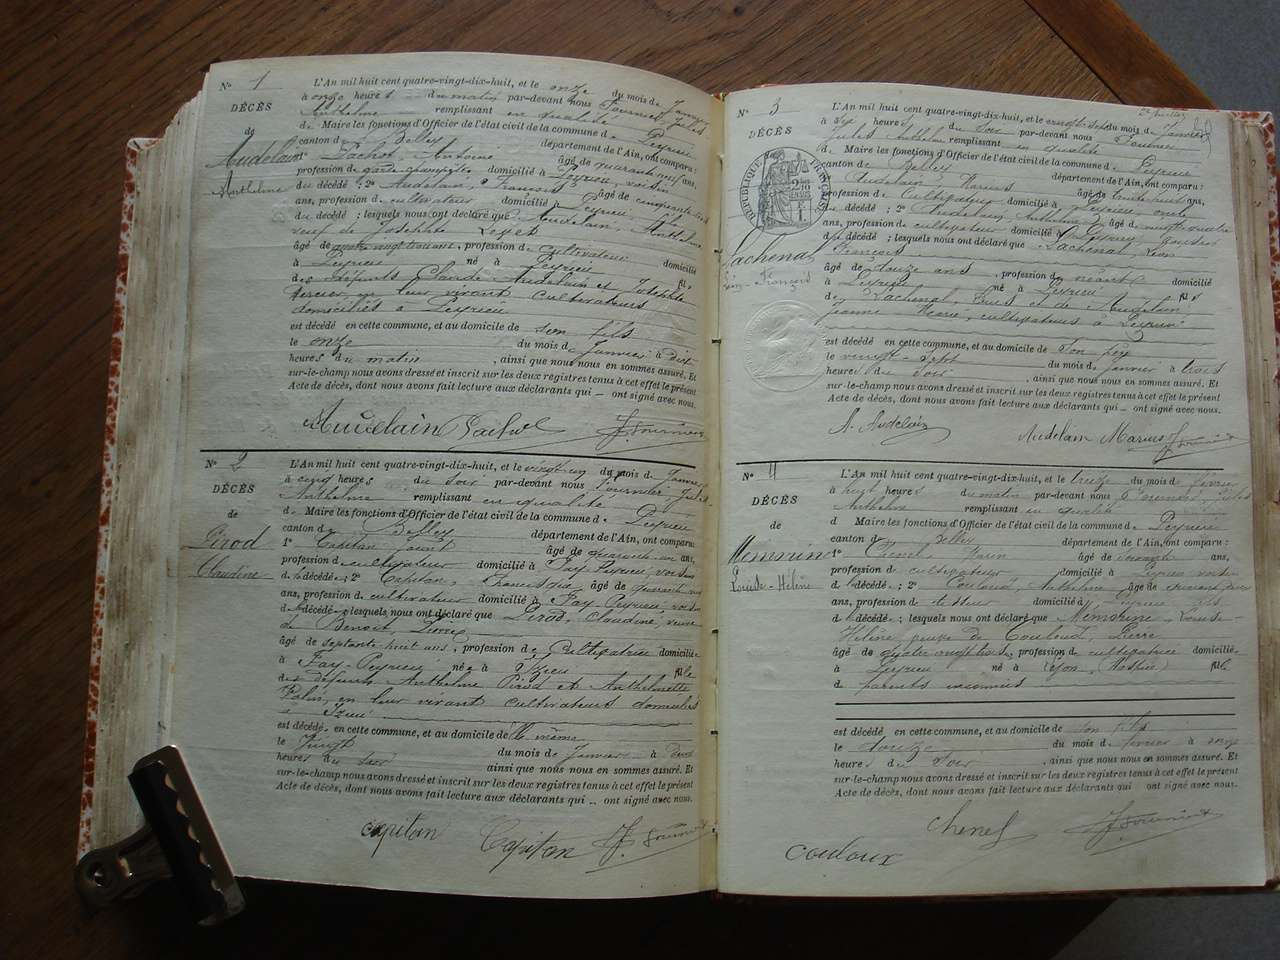 N° 1
DÉCÈS
de
Audelain
Anthelme
L'An mil huit cent quatre-vingt-dix-huit, et le onze du mois de Janvier
à onze heures du matin par-devant nous Fournier, Jules
Anthelme remplissant en qualité
de Maire les fonctions d'Officier de l'état civil de la commune de Peyrieu
canton de Belley département de l'Ain, ont comparu:
1° Pachot, Antoine âgé de quarante neuf ans,
profession de garde champêtre domicilié à Peyrieu, voisin
du décédé; 2° Audelain, François âgé de cinquante
ans, profession de cultivateur domicilié à Peyrieu, fils
du décédé; lesquels nous ont déclaré que Audelain, Anthelme
veuf de Josephte
âgé de quatre vingt ans, profession de cultivateur domicilié
à Peyrieu né à Peyrieu fils
des défunts Claude Audelain et Josephte
Mercier, en leur vivant cultivateurs
domiciliés à Peyrieu
est décédé en cette commune, et au domicile de son fils
le onze du mois de Janvier à dix
heures du matin, ainsi que nous nous en sommes assuré. Et
sur-le-champ nous avons dressé et inscrit sur les deux registres tenus à cet effet le présent
Acte de décès, dont nous avons fait lecture aux déclarants qui ont signé avec nous.
Audelain Pachot J. Fournier
N° 2
DÉCÈS
de
Pirod
Claudine
L'An mil huit cent quatre-vingt-dix-huit, et le vingt un du mois de Janvier
à cinq heures du soir par-devant nous Fournier, Jules
Anthelme remplissant en qualité
de Maire les fonctions d'Officier de l'état civil de la commune de Peyrieu
canton de Belley département de l'Ain, ont comparu:
1° Capitan, âgé de quarante un ans,
profession de cultivateur domicilié à Fay-Peyrieu, voisin
de la décédée; 2° Capitan, François âgé de quarante
ans, profession de cultivateur domicilié à Fay-Peyrieu, voisin
de la décédée; lesquels nous ont déclaré que Pirod, Claudine, veuve
de Benoit, Pierre
âgé de septante huit ans, profession de cultivatrice domicilié
à Fay-Peyrieu née à Izieu fille
des défunts Anthelme Pirod et Anthelmette
en leur vivant cultivateurs domiciliés
à Izieu
est décédé en cette commune, et au domicile de elle même
le vingt du mois de Janvier à deux
heures du soir ainsi que nous nous en sommes assuré. Et
sur-le-champ nous avons dressé et inscrit sur les deux registres tenus à cet effet le présent
Acte de décès, dont nous avons fait lecture aux déclarants qui ont signé avec nous.
capitan Capitan J. Fournier
N° 3
DÉCÈS
RÉPUBLIQUE FRANÇAISE
Lachenal
François
L'An mil huit cent quatre-vingt-dix-huit, et le vingt sept du mois de Janvier
à six heures du soir par-devant nous Fournier
Jules Anthelme remplissant en qualité
de Maire les fonctions d'Officier de l'état civil de la commune de Peyrieu
canton de Belley département de l'Ain, ont comparu:
Audelain, Marius âgé de trente huit ans,
profession de cultivateur domicilié à Peyrieu, oncle
du décédé; 2° Audelain, Anthelme âgé de vingt quatre
ans, profession de cultivateur domicilié à Peyrieu, cousin
du décédé; lesquels nous ont déclaré que Lachenal,
François
âgé de douze ans, profession de néant domicilié
à Peyrieu né à Peyrieu fils
de Lachenal, Louis et de Audelain,
Jeanne Marie, cultivateurs à Peyrieu
est décédé en cette commune, et au domicile de son père
le vingt-sept du mois de Janvier à trois
heures du soir, ainsi que nous nous en sommes assuré. Et
sur-le-champ nous avons dressé et inscrit sur les deux registres tenus à cet effet le présent
Acte de décès, dont nous avons fait lecture aux déclarants qui ont signé avec nous.
A. Audelain Audelain Marius J. Fournier
N° 4
DÉCÈS
de
Louise-Hélène
L'An mil huit cent quatre-vingt-dix-huit, et le treize du mois de février
à huit heures du matin par-devant nous Fournier, Jules
Anthelme remplissant en qualité
d Maire les fonctions d'Officier de l'état civil de la commune de Peyrieu
canton de Belley département de l'Ain, ont comparu:
1° Chenel, âgé de soixante ans,
profession de cultivateur domicilié à Peyrieu, voisin
de la décédée; 2° Anthelme âgé de
ans, profession de tisseur domicilié à Peyrieu fils
de la décédée; lesquels nous ont déclaré que Louise-
Hélène, Pierre
âgé de ans, profession de cultivatrice domicilié
à Peyrieu né à Lyon (Hospice) fille
d parents inconnus
est décédé en cette commune, et au domicile de son fils
le douze du mois de février à onze
heures du soir, ainsi que nous nous en sommes assuré. Et
sur-le-champ nous avons dressé et inscrit sur les deux registres tenus à cet effet le présent
Acte de décès, dont nous avons fait lecture aux déclarants qui ont signé avec nous.
Chenel J. Fournier
couloux